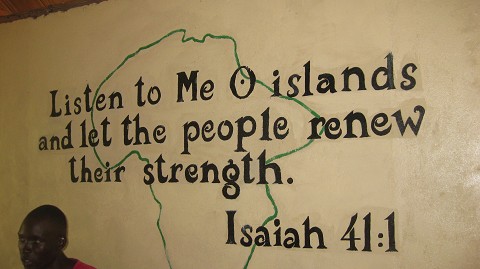 Listen to Me O islands
and let the people renew
their strength.
Isaiah 41:1